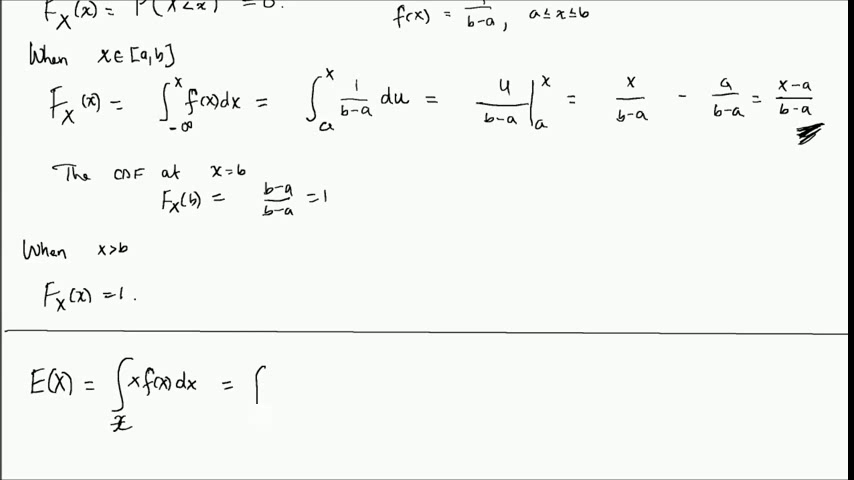 F_X(x) = P(X<x) = 0.
f(x) = 1/b-a, a≤x≤b
When x∈[a,b]
F_X(x) = ∫_{-∞}^{x} f(x)dx = ∫_{a}^{x} 1/b-a du = u/b-a |_{a}^{x} = x/b-a - a/b-a = x-a/b-a
The CDF at x=b
F_X(b) = b-a/b-a = 1
When x>b
F_X(x) = 1.
E(X) = ∫_{x} x f(x) dx = ∫